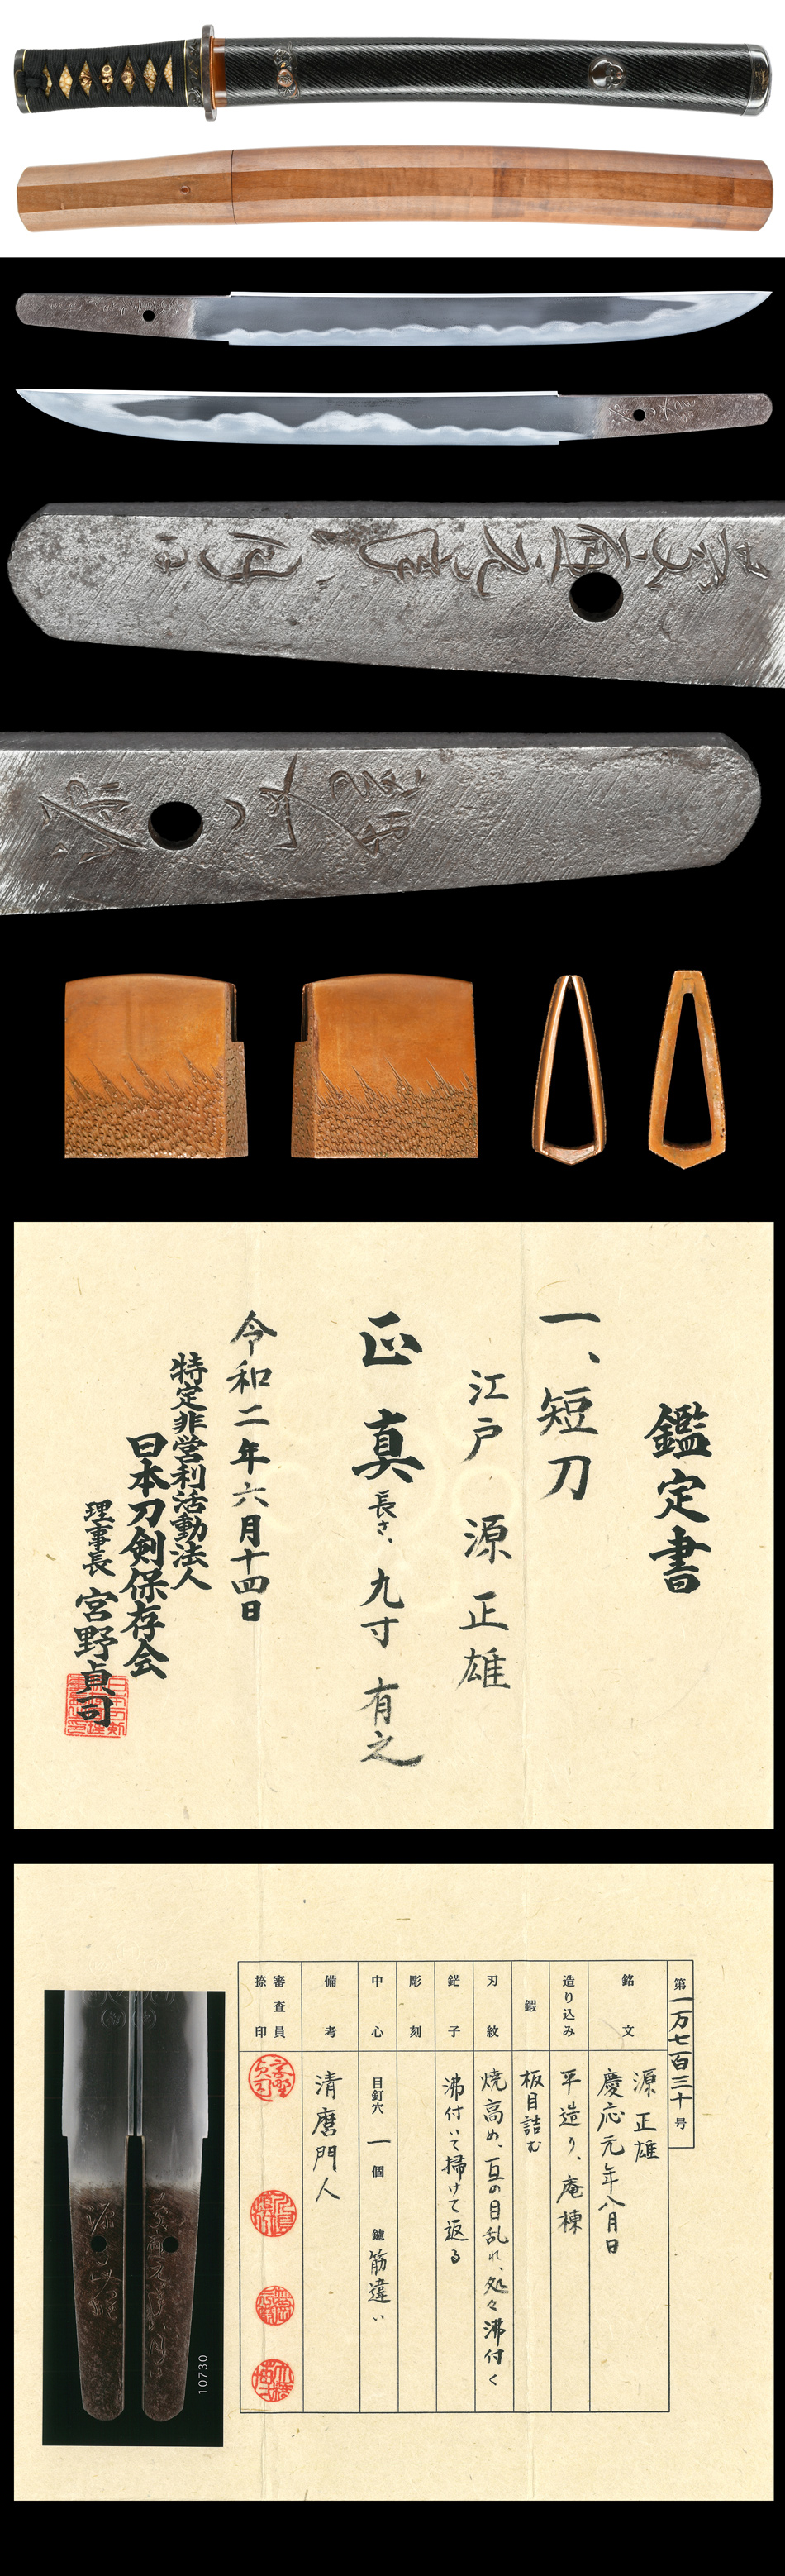 慶応元年八月日
源正雄
鑑定書
一、短刀
江戸 源正雄
正真 長さ、九寸 有之
令和二年六月十四日
特定非営利活動法人
日本刀剣保存会
理事長 宮野貞司
第一万七百三十号
銘文
源正雄
慶応元年八月日
造り込み
平造り、庵棟
鍛
板目詰む
刃紋
焼高め、互の目乱れ、処々沸付く
鋩子
沸付いて掃けて返る
彫刻
中心
目釘穴 一個 鑢 筋違い
備考
清麿門人
審査員
捺印
10730